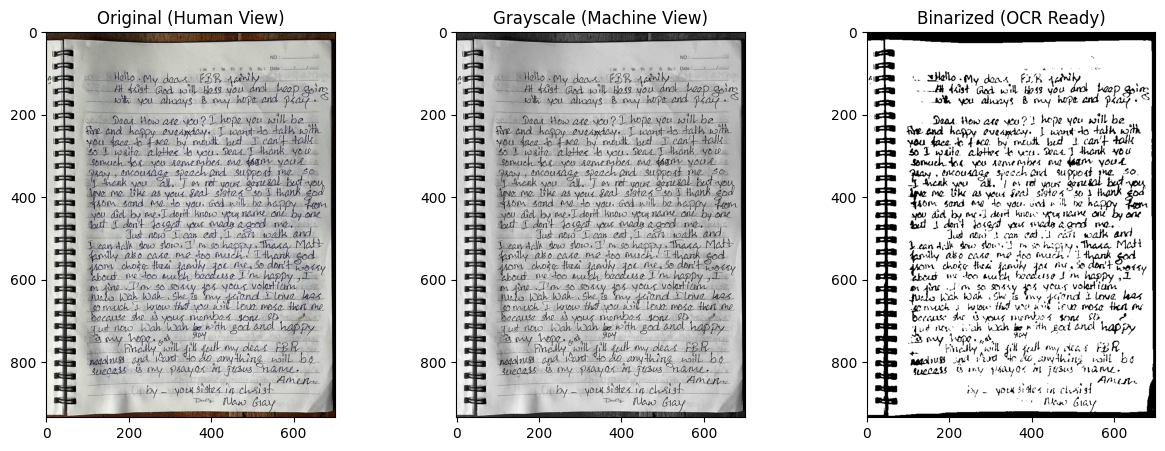 Original (Human View)
Grayscale (Machine View)
Binarized (OCR Ready)
0
200
400
600
800
0
200
400
600
NO
Date
Hello. My dear FBR family
At first God will bless you and keep going
with you always is my hope and pray.
Dear How are you? I hope you will be
fine and happy everyday. I want to talk with
you face to face by mouth but I can't talk
so I write a letter to you. Dear I thank you
somuch for you remembers me from your
pray, encourage speech and support me so
I thank you all. I'm not your general but you
love me like as your real sister so I thank god
from send me to you. God will be happy from
you did by me. I don't know your name one by one
but I don't forget your made a good me.
Just now I can eat, I can walk and
I can talk slow slow. I'm so happy. Thara Matt
family also care me too much. I thank god
from choose their family for me. So don't worry
about me too much because I'm happy, I
m fine. I'm so sorry for your
New Wah Wah. She is my friend I love her
so much I know that you will love more than me
because she is your members sone
but now Wah Wah with god and happy
is my hope.
Finally will full my dear FBR
and want to do anything will be
success is my prayer in Jesus name.
Amen
by - your sister in christ
Naw Gay
0
200
400
600
800
0
200
400
600
0
200
400
600
800
0
200
400
600